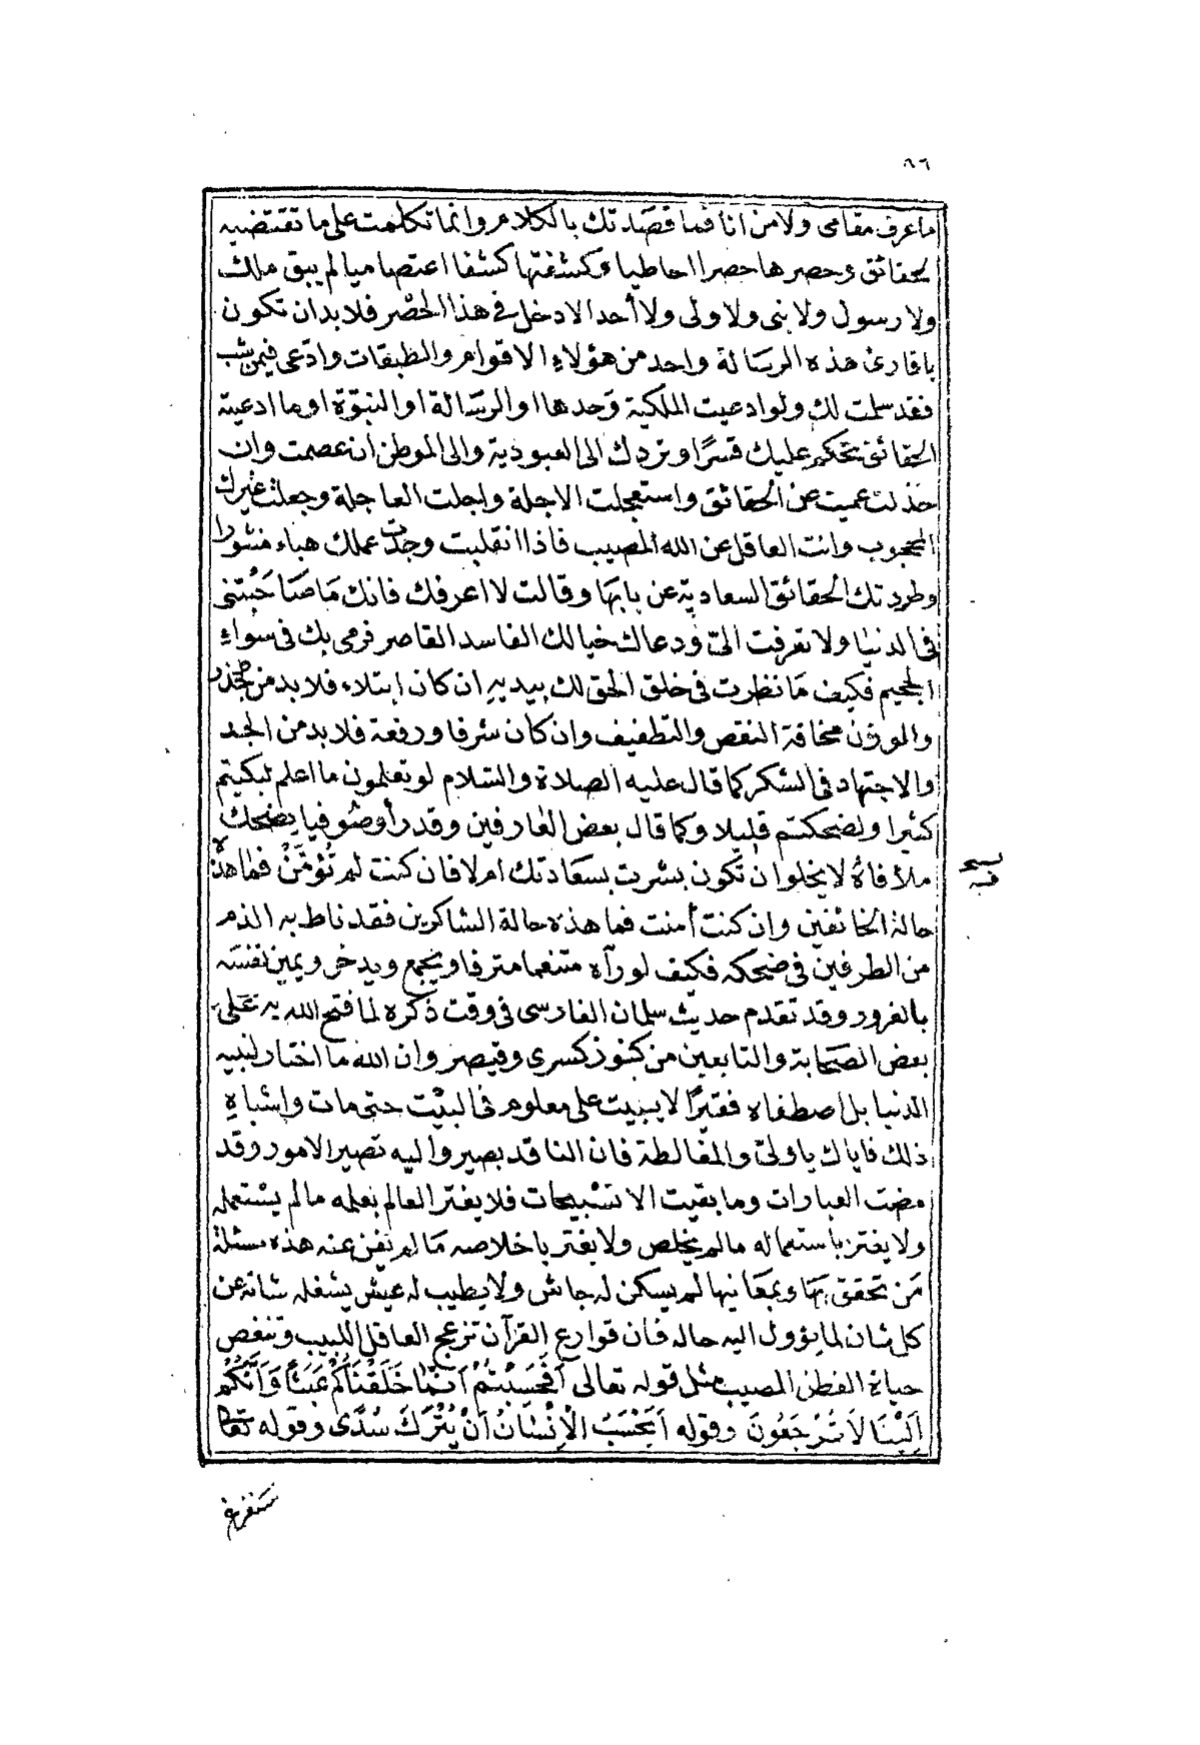 ٨٦
ما عرف مقامى ولا من انا فما قصدتك بالكلام وانما تكلمت على ما تقتضيه
الحقائق وحصرها حصرا احاطيا وكشفتها كشفا اعتصاميا لم يبق ملك
ولا رسول ولا نبى ولا ولى ولا أحد الا دخل فى هذا الحصر فلا بد ان تكون
يا قارئ هذه الرسالة واحد من هؤلاء الاقوام والطبقات وادّعى فيمن شئت
فقد سلمت لك ولو ادعيت الملكية وحدها او الرسالة او النبوّة او ما ادعيته
الحقائق تحكم عليك قسرًا وتردك الى العبودية والى الموطن ان عصمت وان
خذلت عميت عن الحقائق واستعجلت الاجلة واجلت العاجلة وجعلت غيرك
المحجوب وانت العاقل عن الله المصيب فاذا انقلبت وجدت عملك هباء منثورا
وطردتك الحقائق السعادية عن بابها وقالت لا اعرفك فانك ما صاحبتنى
فى الدنيا ولا تعرفت الىّ ودعاك خيالك الفاسد القاصر فرمى بك فى سواء
الجحيم فكيف ما نظرت فى خلق الحق لك بيديه ان كان ابتلاء فلا بد من الحذر
والوزن مخافة النقص والتطفيف وان كان شرفا ورفعة فلا بد من الجد
والاجتهاد فى الشكر كما قال عليه الصلاة والسلام لو تعلمون ما اعلم لبكيتم
كثيرا ولضحكتم قليلا وكما قال بعض العارفين وقد رأى صوفيا يضحك
ملأ فاهُ لا يخلو ان تكون بشرت بسعادتك ام لا فان كنت لم تُؤمَّنْ فما هذه
حالة الخائفين وان كنت أمنت فما هذه حالة الشاكرين فقد ناط به الذم
من الطرفين فى ضحكه فكيف لو رآه متنعما مترفا ويجمع ويدخر ويمين نفسه
بالغرور وقد تقدم حديث سلمان الفارسى فى وقت ذكره لما فتح الله به على
بعض الصحابة والتابعين من كنوز كسرى وقيصر وان الله ما اختار لنبيه
الدنيا بل اصطفاه فقيرًا لا يبيت على معلوم فى البيت حتى مات واشباه
ذلك فاياك ياولىّ والمغالطة فان الناقد بصير واليه تصير الامور وقد
مضت العبارات وما بقيت الا تسبيحات فلا يغتر العالم بعلمه ما لم يستعمله
ولا يغتر باستعماله ما لم يخلص ولا يغتر باخلاصه ما لم يفن عنه هذه مسئلة
من تحقق بها وبمعانيها لم يسكن له جاش ولا يطيب له عيش يشغله شانه عن
كل شان لما يؤول اليه حاله فان قوارع القرآن تزعج العاقل اللبيب وتنغص
حياة الفطن المصيب مثل قوله تعالى أَفَحَسِبْتُمْ أَنَّمَا خَلَقْنَاكُمْ عَبَثًا وَأَنَّكُمْ
إِلَيْنَا لَا تُرْجَعُونَ وقوله أَيَحْسَبُ الْإِنْسَانُ أَنْ يُتْرَكَ سُدًى وقوله تعالى
سنفرغ